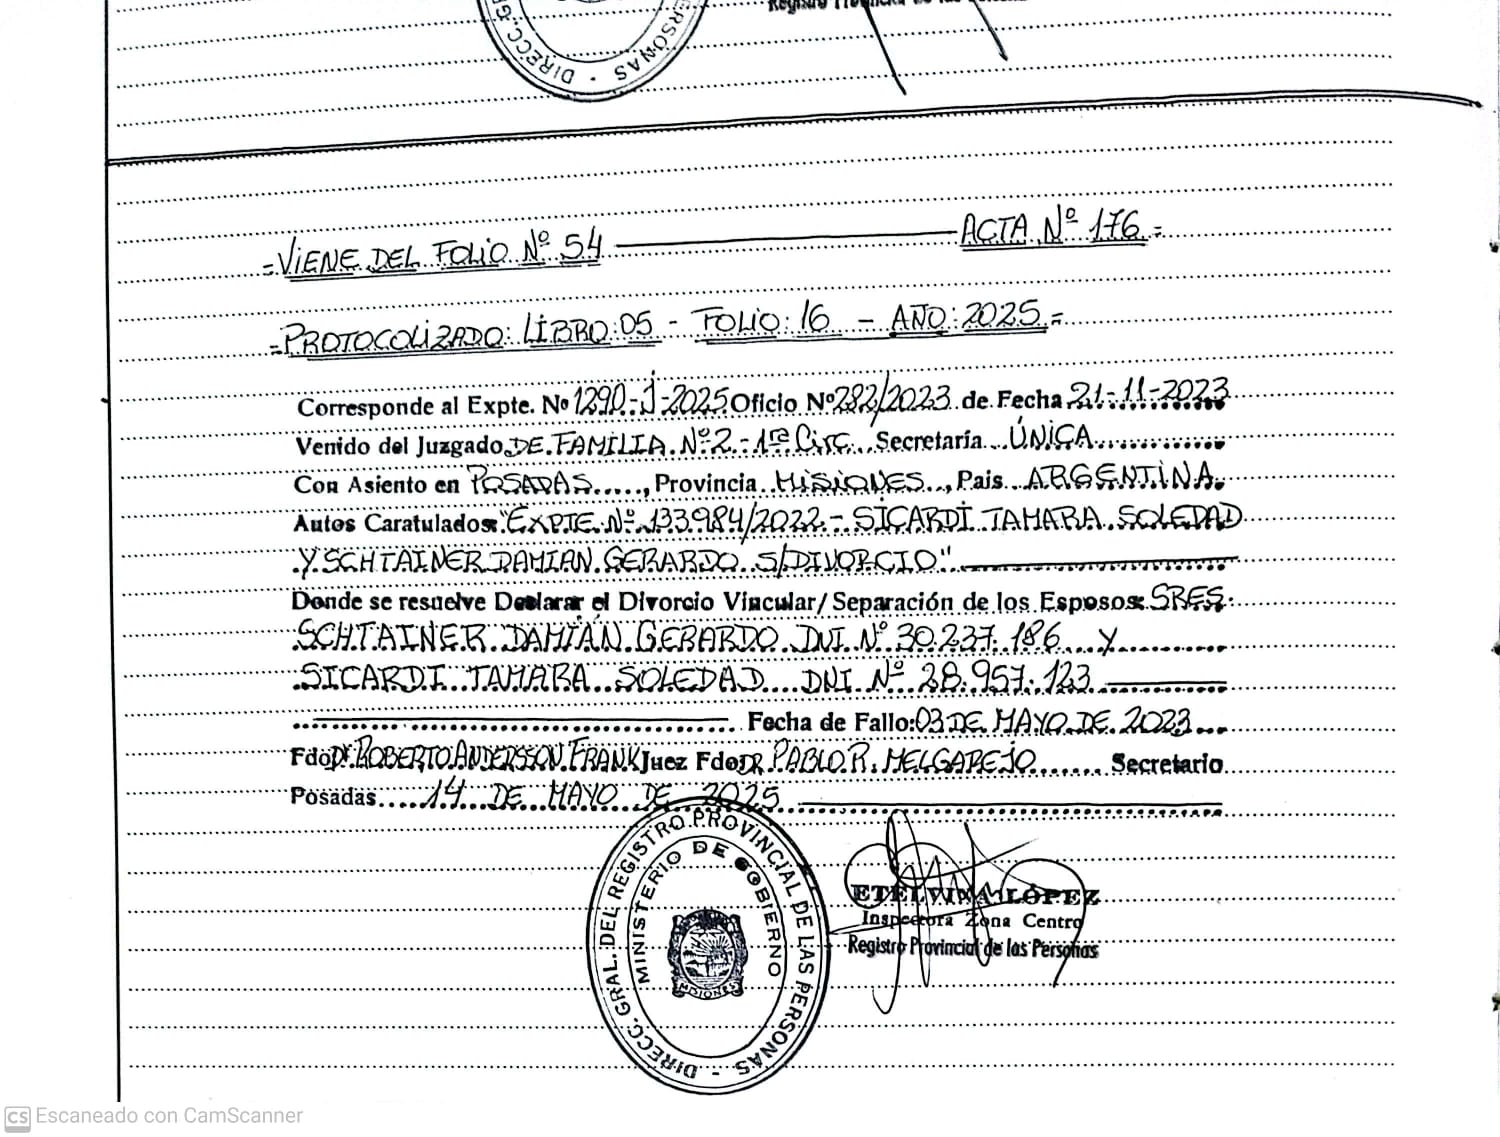 DIRECC. G PERSONAS
Registro Provincial de las Personas
=VIENE DEL FOLIO Nº 54 ACTA Nº 176=
=PROTOCOLIZADO: LIBRO: 05 - FOLIO: 16 - AÑO: 2025=
Corresponde al Expte. Nº 1290-J-2025 Oficio Nº 282/2023 de Fecha 21-11-2023
Venido del Juzgado DE FAMILIA Nº 2 - 1ra Circ. Secretaría ÚNICA
Con Asiento en POSADAS, Provincia MISIONES, Pais ARGENTINA.
Autos Caratulados: "EXPTE Nº 133984/2022 - SICARDI TAMARA SOLEDAD
Y SCHTAINER DAMIAN GERARDO S/DIVORCIO"
Donde se resuelve Declarar el Divorcio Vincular/ Separación de los Esposos: SRES:
SCHTAINER DAMIÁN GERARDO DNI Nº 30.237.186 Y
SICARDI TAMARA SOLEDAD DNI Nº 28.957.123
Fecha de Fallo: 03 DE MAYO DE 2023
Fdo Dr. ROBERTO ANDERSSON FRANK Juez Fdo DR PABLO R. MELGAREJO Secretario
Posadas 14 DE MAYO DE 2025
DIRECC. GRAL. DEL REGISTRO PROVINCIAL DE LAS PERSONAS -
MINISTERIO DE GOBIERNO
MISIONES
ETELVINA LÓPEZ
Inspectora Zona Centro
Registro Provincial de las Personas
CS Escaneado con CamScanner